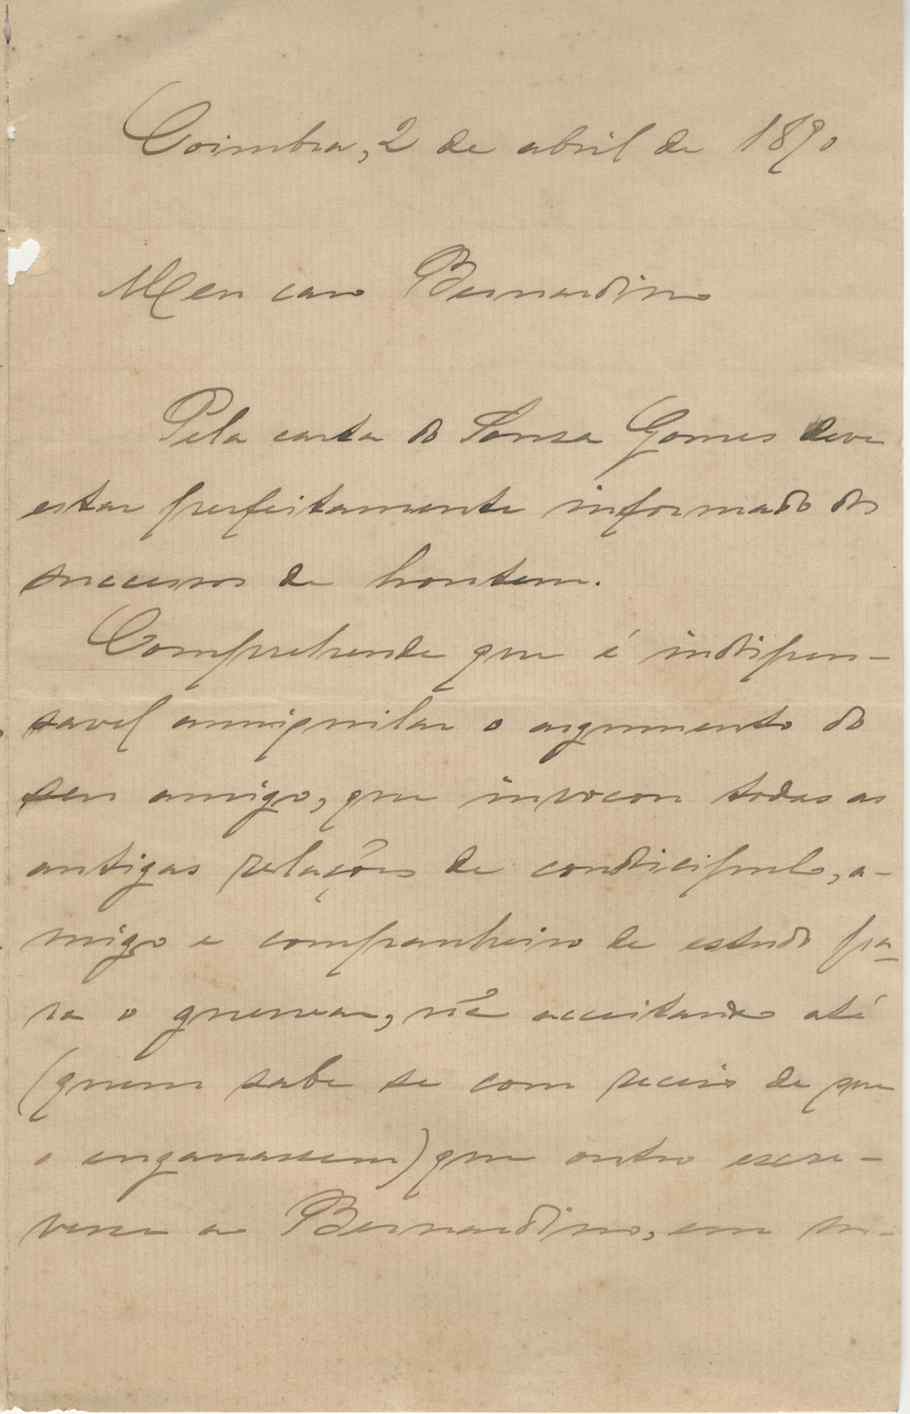 Coimbra, 2 de abril de 1890
Meu caro Bernardino
Pela carta do Sousa Gomes deve
estar perfeitamente informado dos
successos de hontem.
Comprehende que é indispen-
savel anniquilar o argumento do
seu amigo, que invocou todas as
antigas relações de condiscipulo, a-
migo e companheiro de estudo pa-
ra o guerrear, não acceitando até
(quem sabe se com receio de que
o enganassem) que outro escre-
vesse ao Bernardino, em